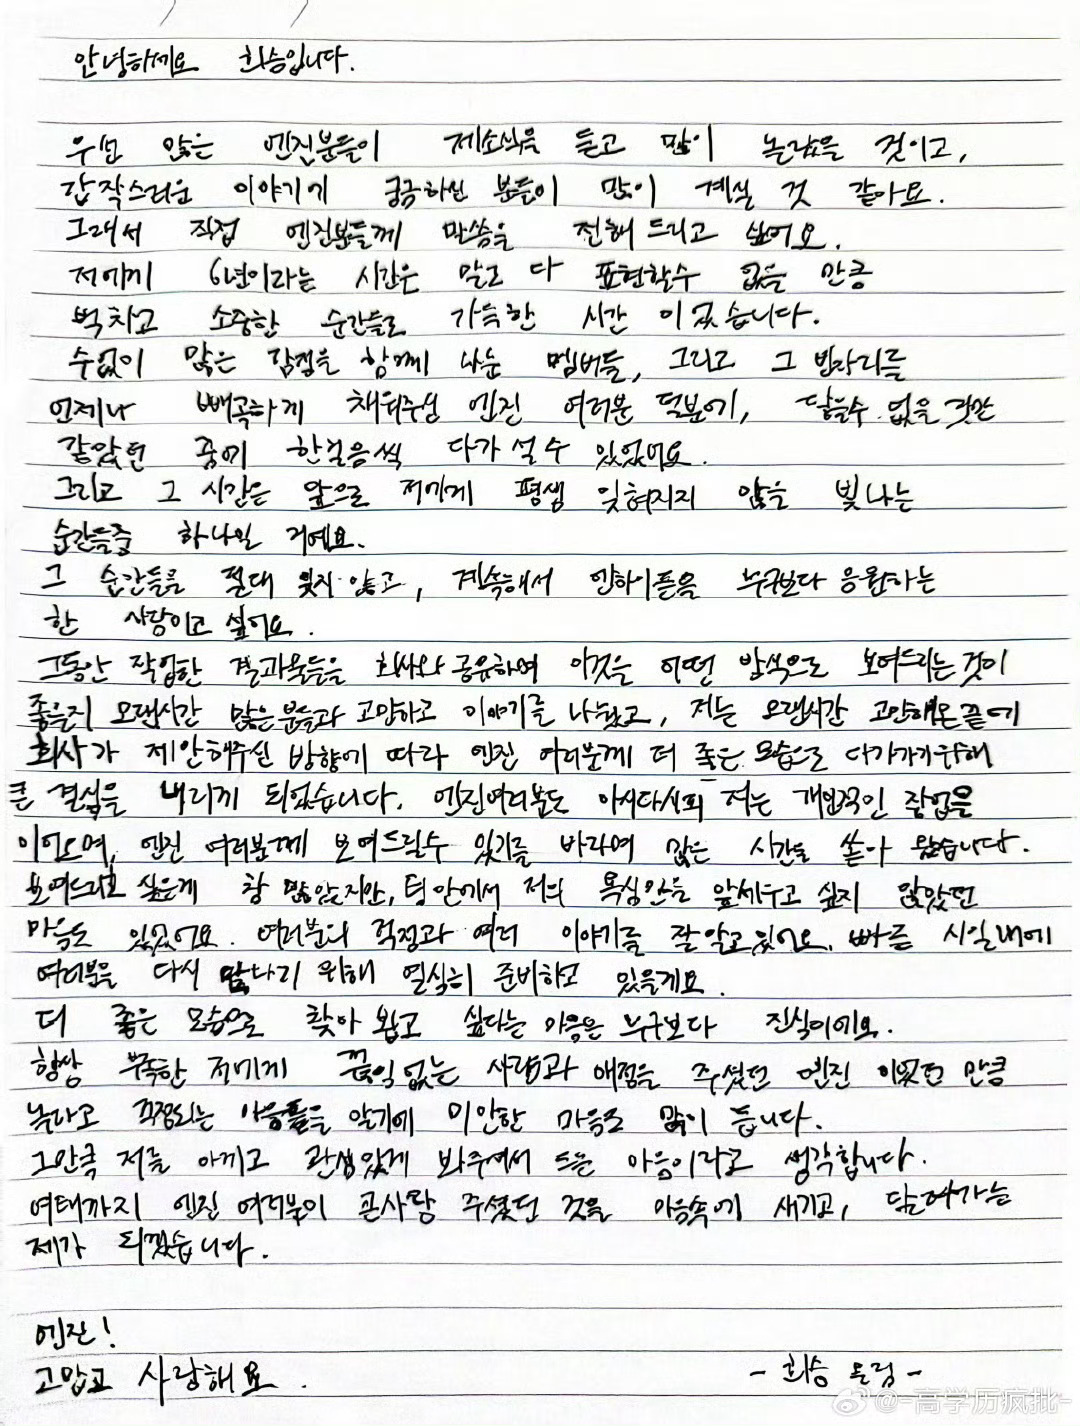 안녕하세요 희승입니다.
우선 많은 엔진분들이 제소식을 듣고 많이 놀랐을 것이고,
갑작스러운 이야기에 궁금하신 분들이 많이 계실 것 같아요.
그래서 직접 엔진분들께 말씀을 전해 드리고 싶어요.
저에게 6년이라는 시간은 말로 다 표현할수 없을 만큼
벅차고 소중한 순간들로 가득한 시간 이었습니다.
수없이 많은 감정을 함께 나눈 멤버들, 그리고 그 빈자리를
언제나 빼곡하게 채워주신 엔진 여러분 덕분에, 닿을수 없을 것만
같았던 꿈에 한걸음씩 다가 설 수 있었어요.
그리고 그 시간은 앞으로 저에게 평생 잊혀지지 않을 빛나는
순간들중 하나일 거예요.
그 순간들을 절대 잊지 않고, 계속해서 엔하이픈을 누구보다 응원하는
한 사람이고 싶어요.
그동안 작업한 결과물들을 회사와 공유하며 이것을 어떤 방식으로 보여드리는 것이
좋을지 오랜시간 많은 분들과 고민하고 이야기를 나눴고, 저는 오랜시간 고민해온 끝에
회사가 제안해주신 방향에 따라 엔진 여러분께 더 좋은 모습으로 다가가기위해
큰 결심을 내리게 되었습니다. 엔진여러분도 아시다시피 저는 개인적인 작업을
이어오며, 엔진 여러분께 보여드릴수 있기를 바라며 많은 시간을 쏟아 왔습니다.
보여드리고 싶은게 참 많았지만, 팀 안에서 저의 욕심만을 앞세우고 싶지 않았던
마음도 있었어요. 여러분의 걱정과 여러 이야기를 잘 알고 있어요. 빠른 시일내에
여러분을 다시 만나기 위해 열심히 준비하고 있을게요.
더 좋은 모습으로 찾아 뵙고 싶다는 마음은 누구보다 진심이에요.
항상 부족한 저에게 끊임없는 사랑과 애정을 주셨던 엔진 이었던 만큼
놀라고 걱정되는 마음들을 알기에 미안한 마음도 많이 듭니다.
그만큼 저를 아끼고 관심있게 봐주셔서 드는 마음이라고 생각합니다.
여태까지 엔진 여러분이 큰사랑 주셨던 것을 마음속에 새기고, 담아가는
제가 되겠습니다.
엔진!
고맙고 사랑해요.
- 희승 올림 -
@-高学历疯批-